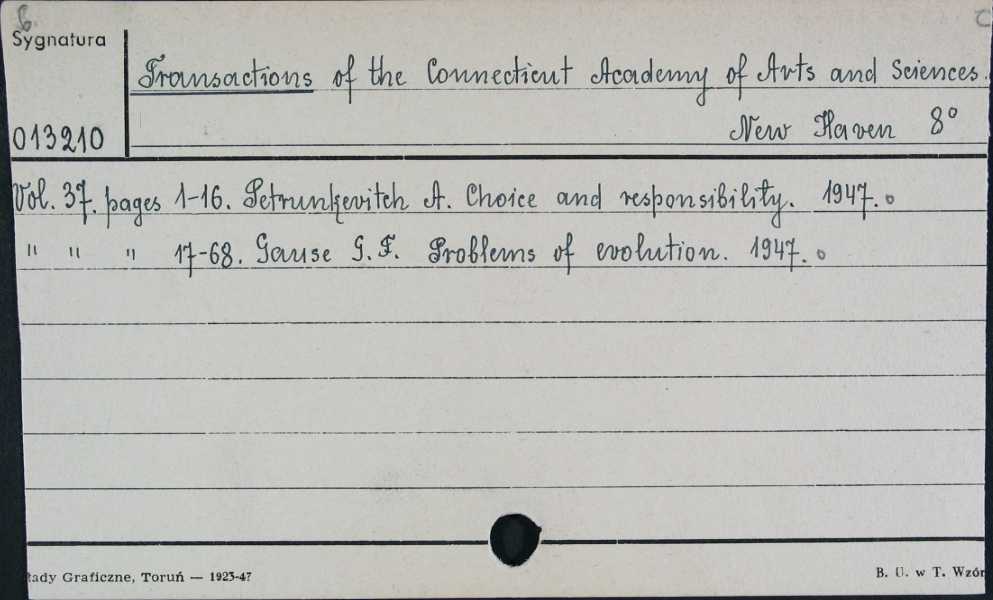 6.
Sygnatura
Transactions of the Connecticut Academy of Arts and Sciences.
013210
New Haven 8°
Vol. 37. pages 1-16. Petrunkevitch A. Choice and responsibility. 1947.
" " " 17-68. Gause G. F. Problems of evolution. 1947.
łady Graficzne, Toruń — 1923-47
B. U. w T. Wzór